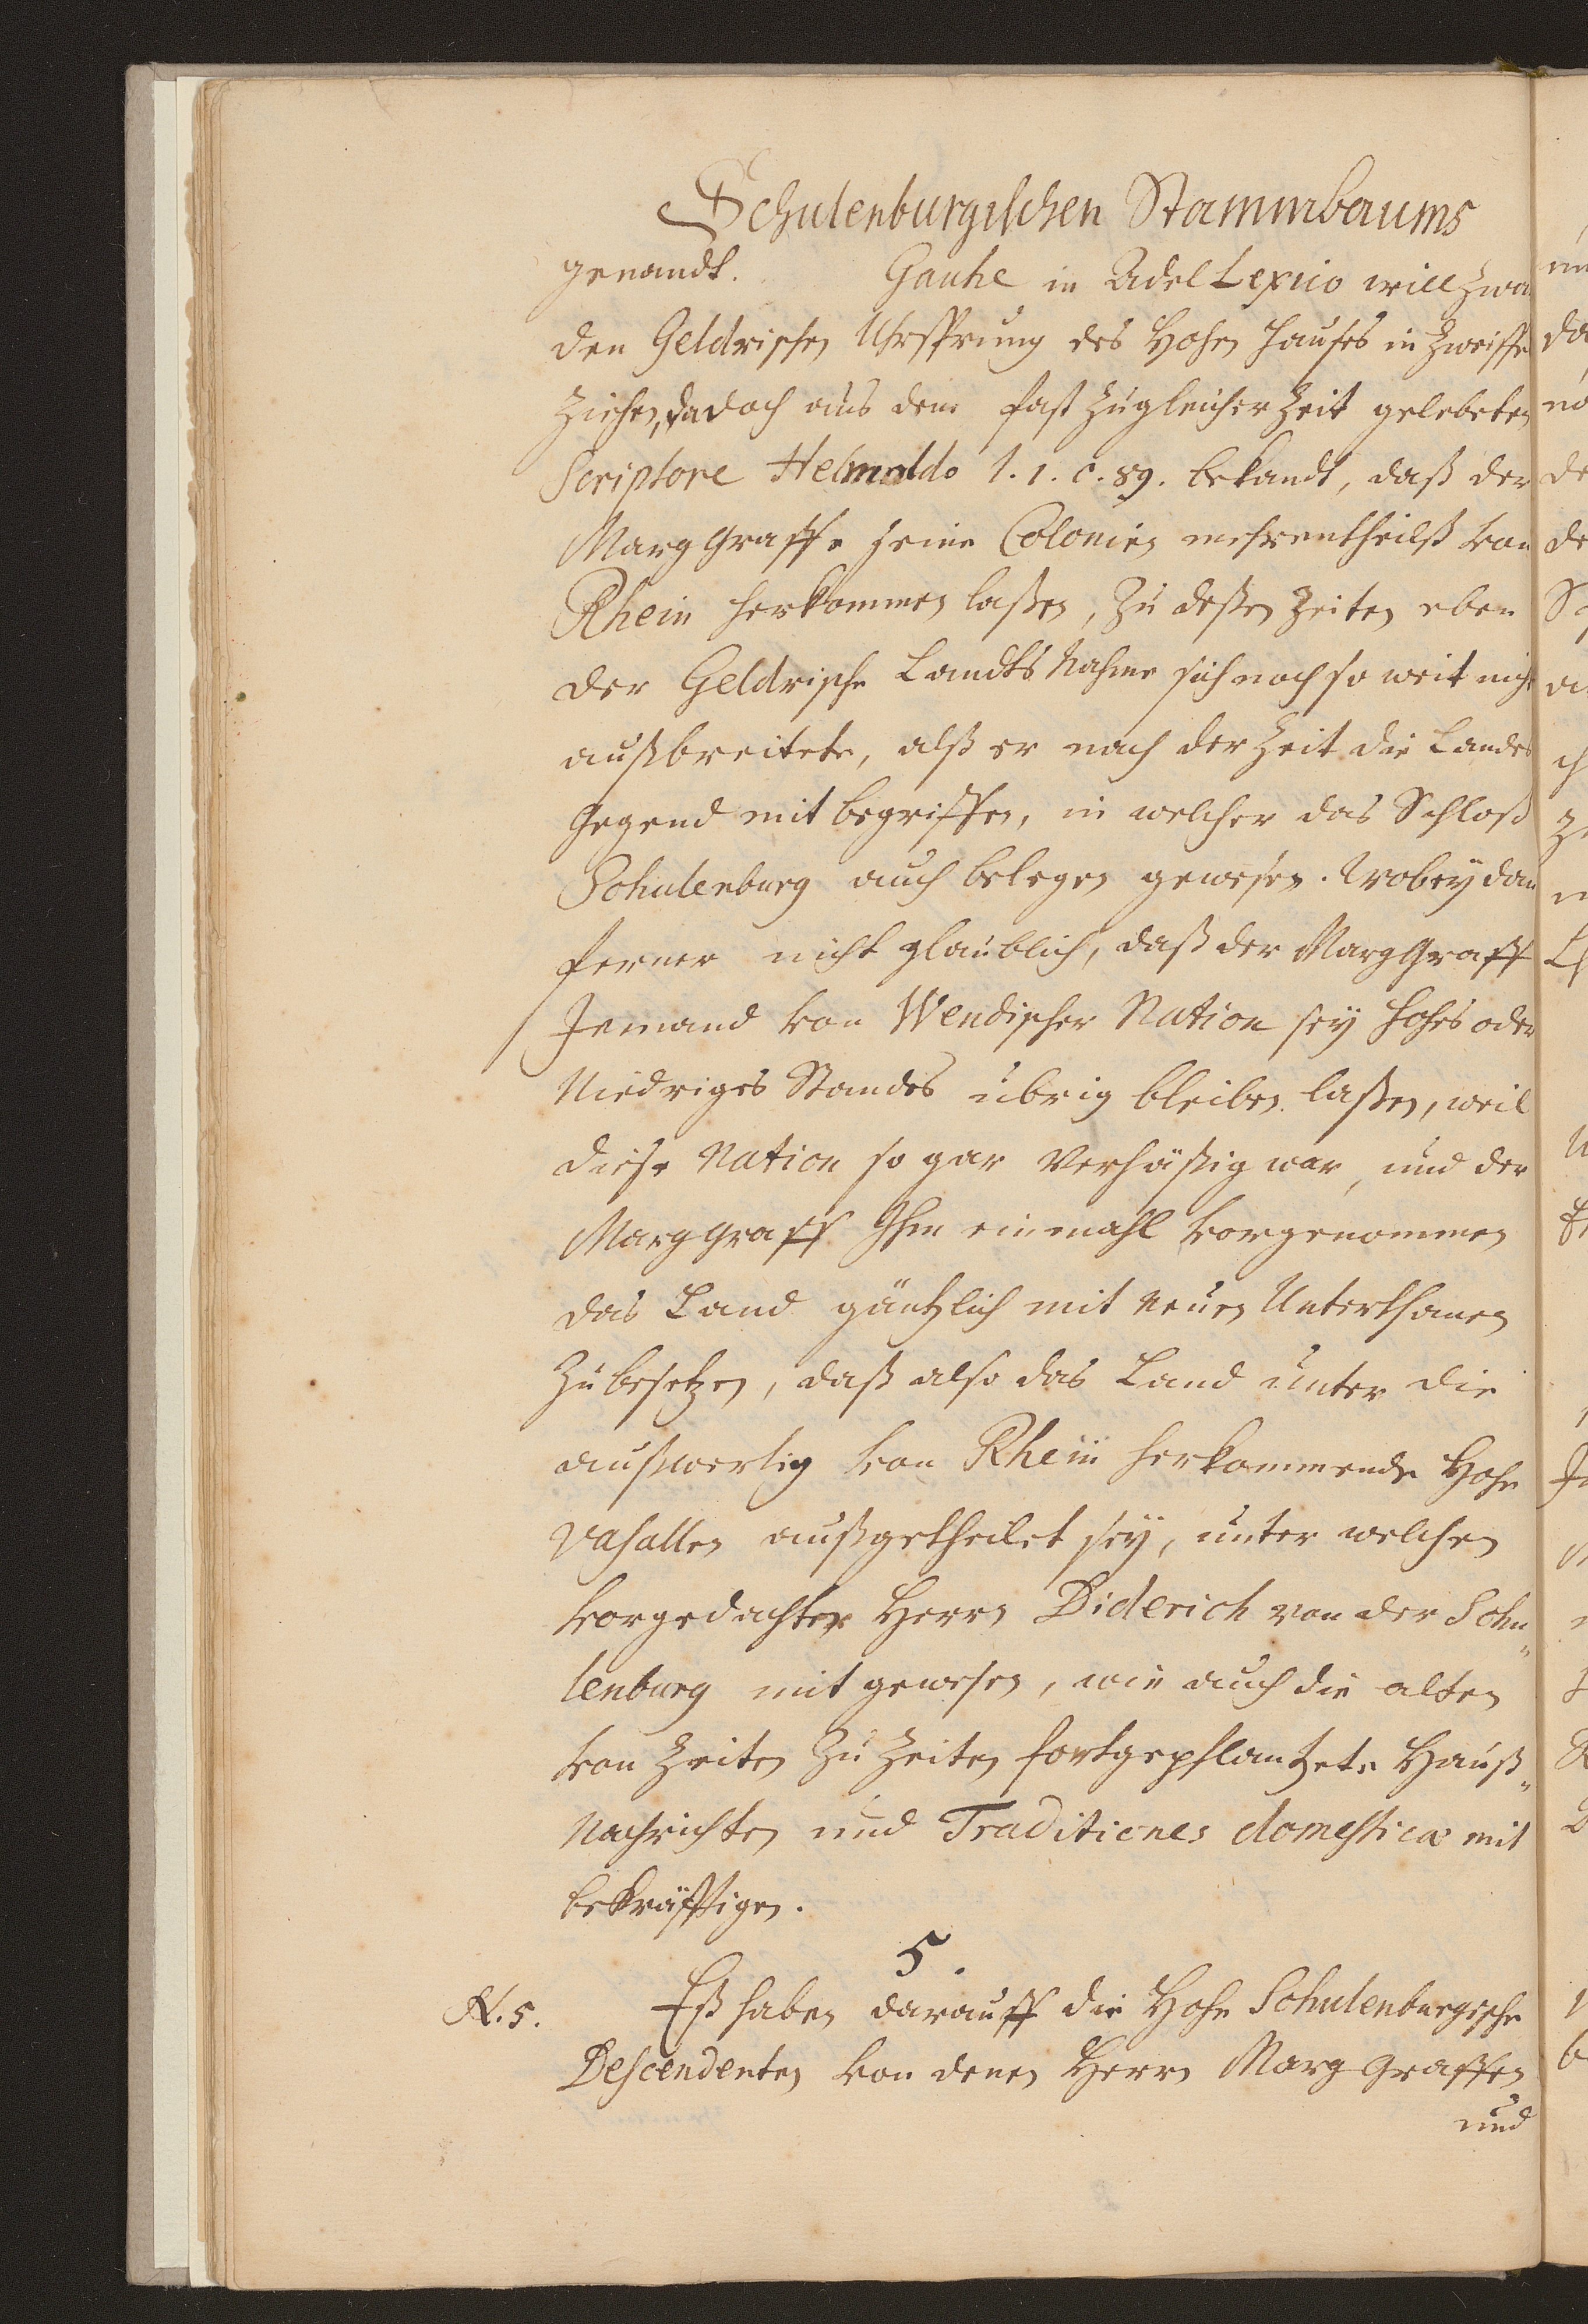 Schulenburgischen Stammbaums
genandt. Gauhe in Adel Lexico will zwar
den Geldrischen Uhrsprung des Hohen Hauses in Zweiffel
ziehen, da doch aus dem fast zu gleicher Zeit gelebeten
Scriptore Helmoldo l. 1. c. 89. bekandt, daß der
Marggraffe seine Colonien mehrentheilß von
Rhein herkommen laßen, zu deßen Zeiten eben
der Geldrische Landts Nahme sich noch so weit nicht
außbreitete, alß er nach der Zeit die Landes
Gegend mit begriffen, in welcher das Schloß
Schulenburg auch belegen gewesen. Wobey dan
ferner nicht glaublich, daß der Marggraff
Jemand von Wendischer Nation sey hohes oder
Niedriges Standes übrig bleiben laßen, weil
diese Nation so gar verhäßig war, und der
Marggraff Ihm einmahl vorgenommen
das Land gäntzlich mit neuen Unterthanen
zu besetzen, daß also das Land unter die
außwertig von Rhein herkommende Hohe
Vasallen außgetheilet sey, unter welchen
vorgedachter Herrn Diderich von der Schu„
lenburg mit gewesen, wie auch die alten
von Zeiten zu Zeiten fortgepflantzete Hauß„
Nachrichten und Traditiones domesticæ mit
bekräfftigen.
5.
N. 5. Eß haben darauff die Hohe Schulenburgische
Descendenten von denen Herrn Marg Graffen
und